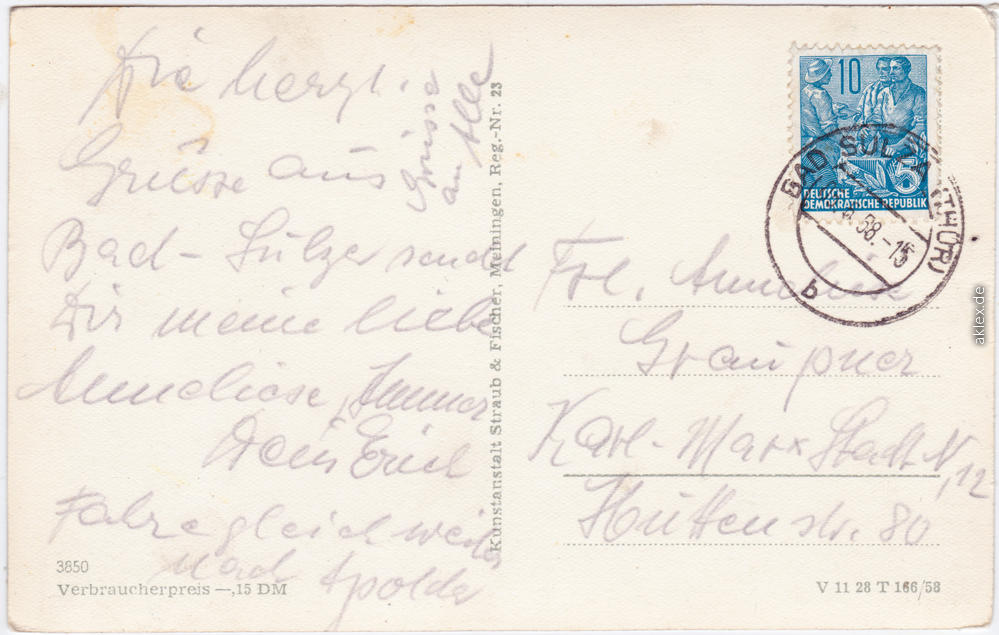 Die herzl.
Grüsse aus
Bad-Sulza sendet
Dir meine liebe
Anneliese, Immer
Dein Erich
Fahre gleich weiter
Nach Apolda
Grüsse
an Alle
3850
Verbraucherpreis —,15 DM
Kunstanstalt Straub & Fischer, Meiningen, Reg.-Nr. 23
10
5
DEUTSCHE
DEMOKRATISCHE REPUBLIK
BAD SULZA (THÜR)
58.-15
b
Frl. Anneliese
Graupner
Karl-Marx Stadt N,12
Huttenstr. 80
V 11 28 T 166/58
aklex.de